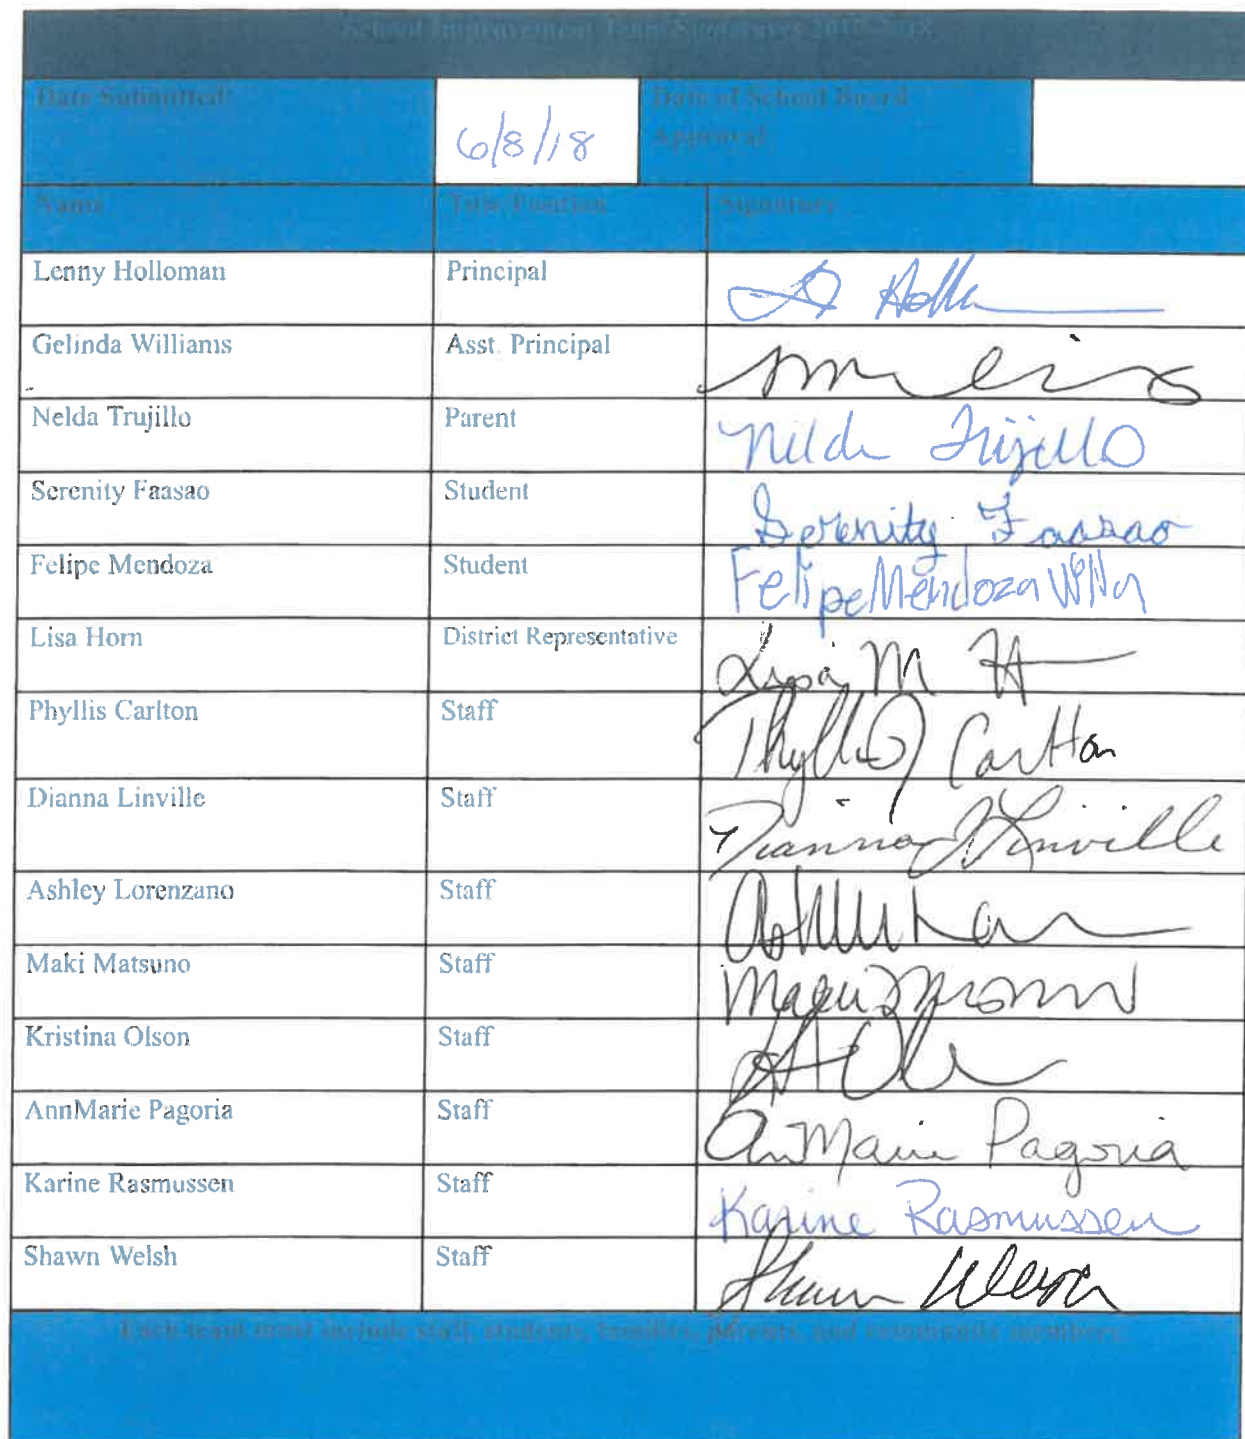 School Improvement Team Signatures 2017-2018
Date Submitted: 6/8/18 Date of School Board
Approval
Name Title/Position Signature
Lenny Holloman Principal
Gelinda Williams Asst. Principal
Nelda Trujillo Parent Nelda Trujillo
Serenity Faasao Student Serenity Faasao
Felipe Mendoza Student Felipe Mendoza Villa
Lisa Horn District Representative Lisa M H
Phyllis Carlton Staff Phyllis J Carlton
Dianna Linville Staff Dianna J Linville
Ashley Lorenzano Staff
Maki Matsuno Staff
Kristina Olson Staff
AnnMarie Pagoria Staff AnnMarie Pagoria
Karine Rasmussen Staff Karine Rasmussen
Shawn Welsh Staff Shawn Welsh
Each team must include staff, students, families, parents, and community members.